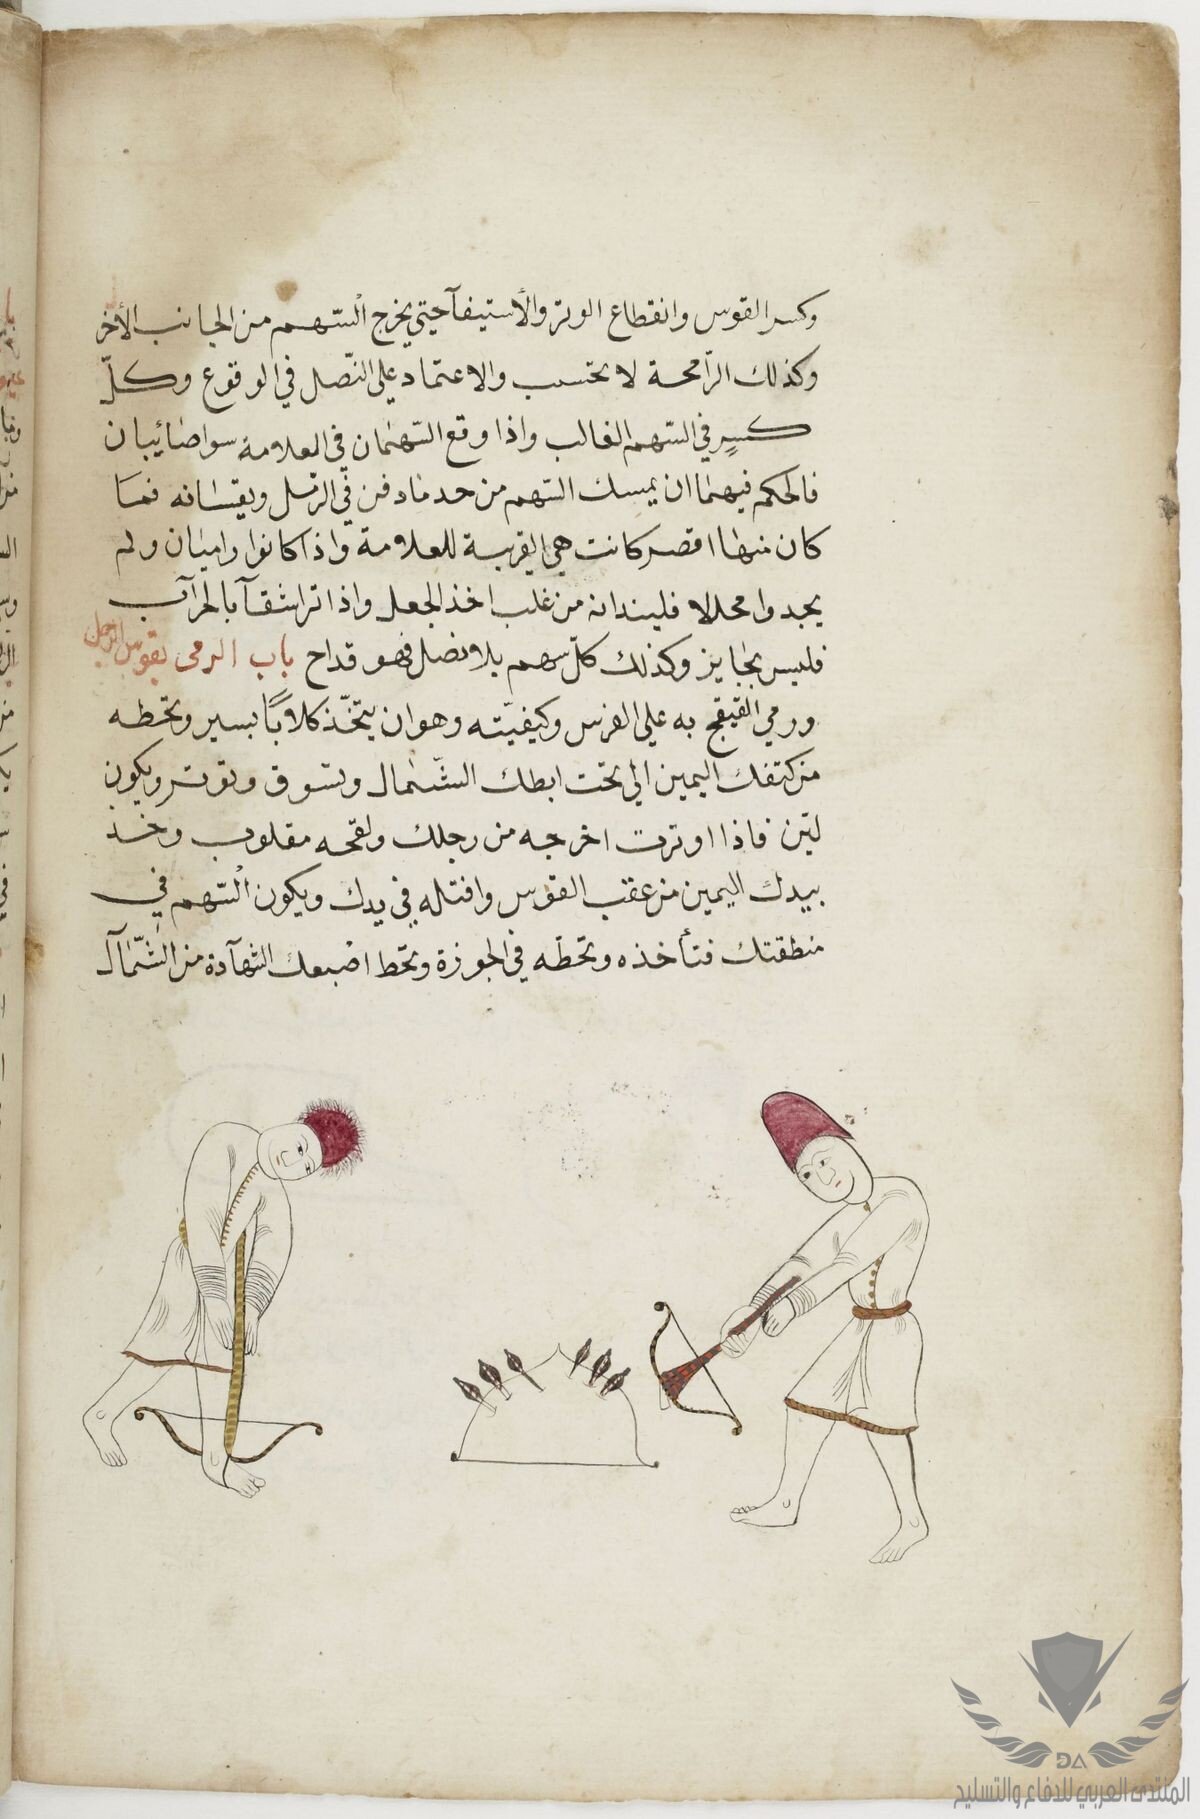 وكسر القوس وانقطاع الوتر والأستيفآ حتي يخرج السّهم من الجانب الأخر
وكذلك الرّامحة لا تحتسب والاعتماد علي النّصل في الوقوع وكلّ
كسير في السّهم الغالب واذا وقع السّهمان في العلامة سوا صايبان
فالحكم فيهما ان يمسك السّهم من حد ما دفن في الرّمل ويقيسانه فما
كان منها اقصر كانت هي القريبة للعلامة واذا كانوا راميان ولم
يجدوا محللا فليندانه من غلب اخذ الجعل واذا تراشقآ بالحرآب
فليس بجايز وكذلك كلّ سهم بلا نصل فهو قداح باب الرمى بقوس الرجل
ورمي القيقج به علي الفرس وكيفيّته وهو ان يتخّذ كلابًا بسير وتحطه
من كتفك اليمين الي تحت ابطك الشّمال وتسوق وتوتر ويكون
ليّن فاذا اوترت اخرجه من رجلك ولقحه مقلوب وخذ
بيدك اليمين من عقب القوس وافتله في يدك ويكون السّهم في
منطقتك فتأخذه وتحطّه في الجوزة وتحط اصبعك الشهآدة من الشّمآل
DA
المنتدى العربي للدفاع والتسليح